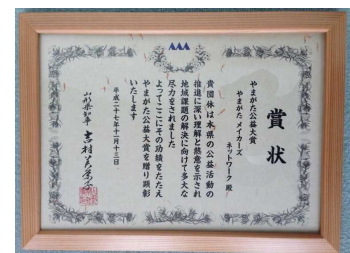 賞状
やまがた公益大賞
やまがたメイカーズ
ネットワーク殿
貴団体は本県の公益活動の
推進に深い理解と熱意を示され
地域課題の解決に向けて多大な
尽力をされました
よってここにその功績をたたえ
やまがた公益大賞を贈り顕彰
いたします
平成二十七年十二月十三日
山形県知事 吉村美栄子